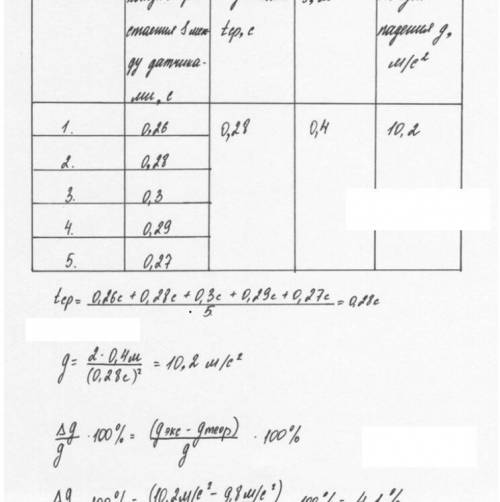 стояния S меж-
ду датчика-
ми, с
tср, с
падения g,
м/с²
1. 0,26 0,28 0,4 10,2
2. 0,28
3. 0,3
4. 0,29
5. 0,27
tср = 0,26с + 0,28с + 0,3с + 0,29с + 0,27с / 5 = 0,28с
g = 2·0,4м / (0,28с)² = 10,2 м/с²
Δg / g · 100% = (gэкс - gтеор) / g · 100%
(10,2м/с² - 9,8м/с²)